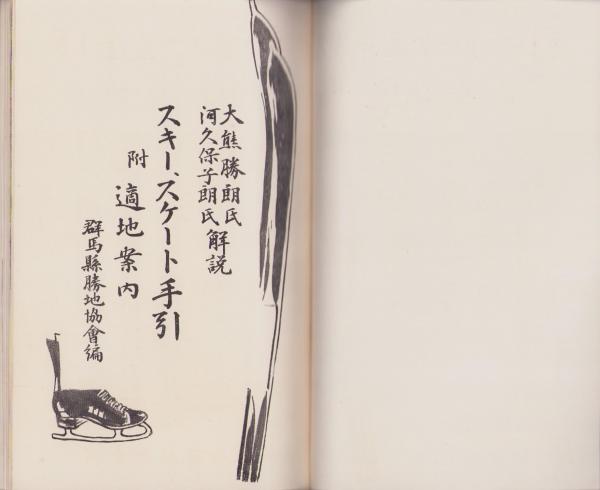 大熊勝朗氏
河久保子朗氏 解説
スキー、スケート手引
附 適地案内
群馬縣勝地協會編